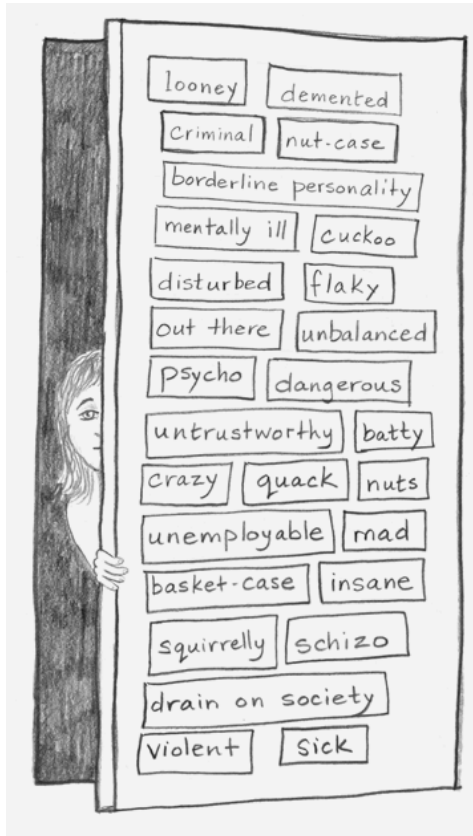 looney demented
criminal nut-case
borderline personality
mentally ill cuckoo
disturbed flaky
out there unbalanced
psycho dangerous
untrustworthy batty
crazy quack nuts
unemployable mad
basket-case insane
squirrelly schizo
drain on society
violent sick